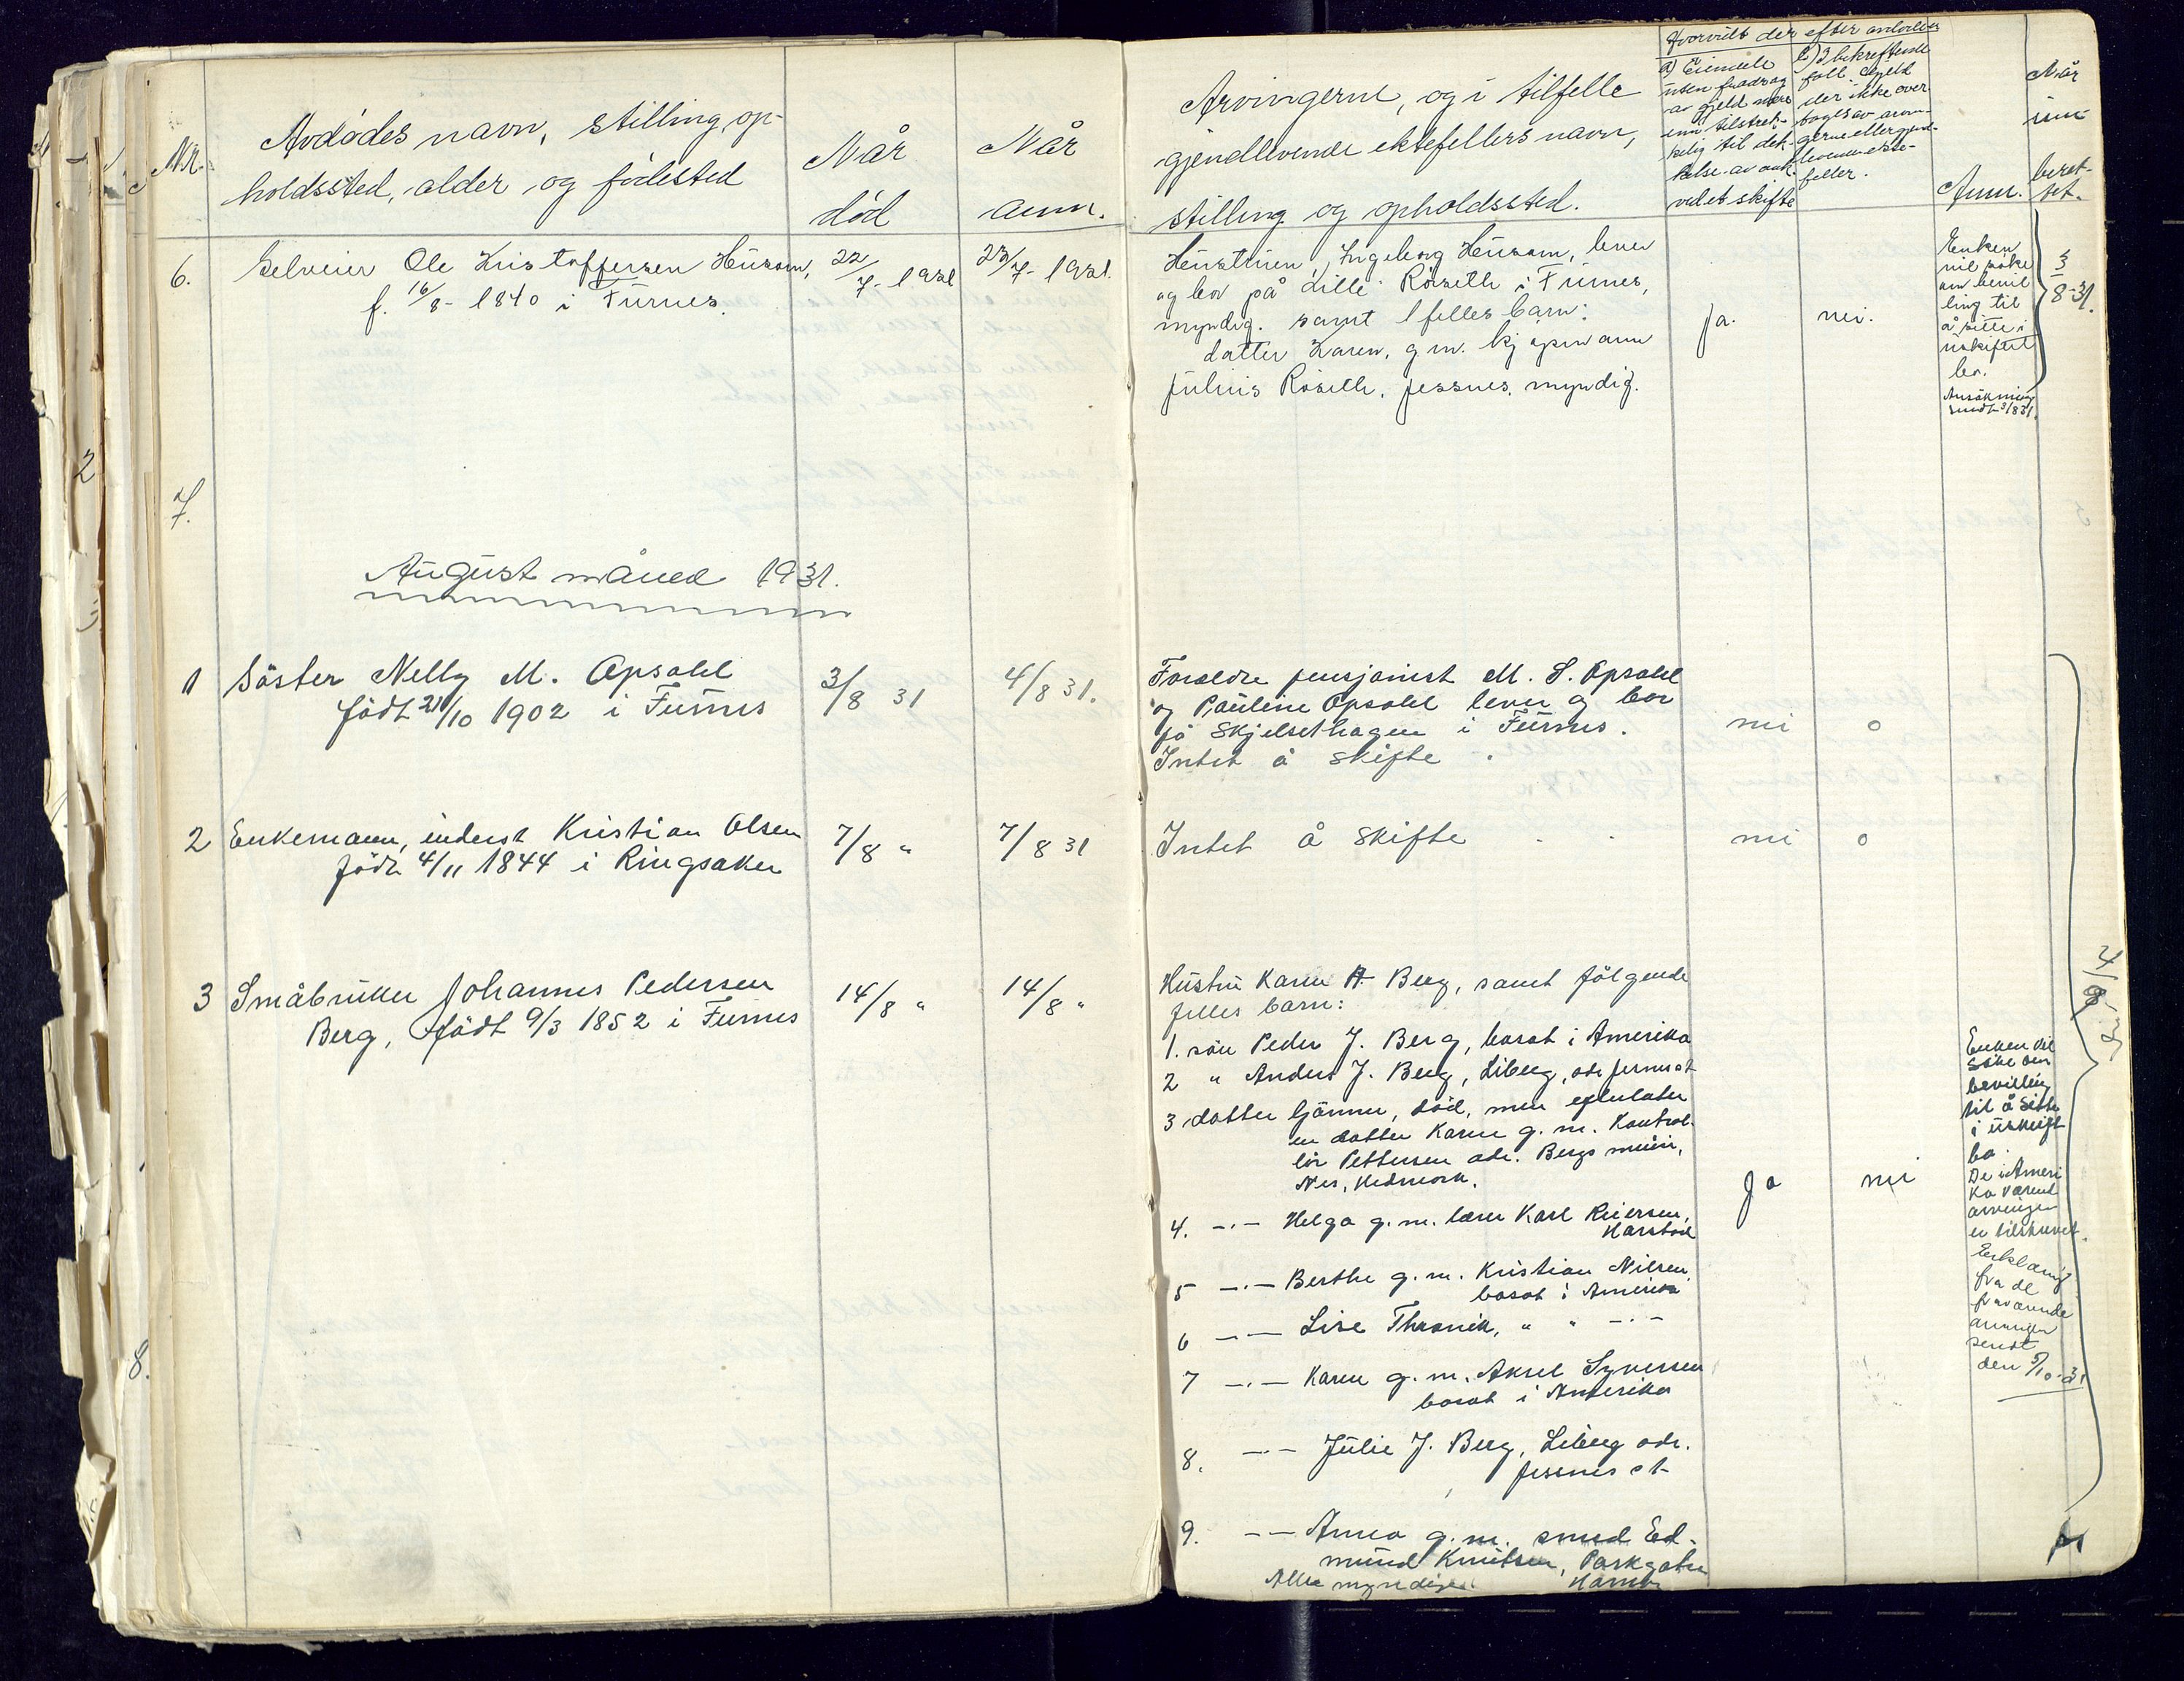 Nr.
Avdødes navn, stilling, op-
holdssted, alder og fødested
Når
død
Når
anm.
Arvingerne, og i tilfelle
gjenlevende ektefellers navn,
stilling og opholdssted.
Hvorvidt der efter avdøde er
a) Eiendele
uten fradrag
av gjeld mere
enn tilstrek-
kelig til dek-
kelse av omk.
ved et skifte
b) I bekreftende
fall. Gjeld
der ikke over
tages av arvin-
gerne eller gjen-
levende ekte-
feller.
Anm.
Når
inn-
beret-
tet.
6.
Selveier Ole Kristoffersen Husom,
f. 16/8- 1840 i Furnes.
22/7- 1931
23/7- 1931.
Hustruen, Ingeborg Husom, lever
og bor på Lille Röseth i Furnes,
myndig. samt 1 felles barn:
datter Karen, g. m. kjöpmann
Julius Röseth, Jessnes, myndig.
ja.
nei.
Enken
vil söke
om bevil
ling til
å sitte i
uskiftet
bo.
Ansökning
sendt 3/8 31.
3/8-31.
7.
August måned 1931.
1
Söster Nelly M. Opsahl
födt 21/10 1902 i Furnes
3/8 31
4/8 31.
Foreldre pensjonist M. S. Opsahl
og Pauline Opsahl lever og bor
på Skjelsethagen i Furnes.
Intet å skifte
nei
0
2
Enkemann, inderst Kristian Olsen
födt 4/11 1844 i Ringsaker
7/8 "
7/8 31
Intet å skifte
nei
0
3
Småbruker Johannes Pedersen
Berg, födt 9/3 1852 i Furnes
14/8 "
14/8 "
Hustru Karen A Berg, samt fölgende
felles barn:
1. sön Peder J. Berg, bosat i Amerika
2 " Anders J. Berg, Liberg, adr Jesnes st
3 datter Gjönner, död, men efterlater
en datter Karen g. m. Kontrol-
lör Pettersen adr. Bergs meieri,
Nes, Hedmark.
4. -.- Helga g. m. lærer Karl Reiersen,
Harstad
5 -.- Berthe g. m. Kristian Nilsen
bosat i Amerika
6 -.- Lise Thrånik, " " -.-
7 -.- Karen g. m. Aksel Syversen
bosat i Amerika
8. -.- Julie J. Berg, Liberg adr.
Jessnes st
9. -.- Anna g. m. smed Ed-
mund Knutsen, Parkgaten
Hamar
Alle myndige
Ja
nei
Enken vil
söke om
bevilling
til å sitte
i uskiftet
bo.
De i Ameri
ka værende
arvinger
er tilskrevet.
Erklæring
fra de
fraværende
arvinger
sendt
den 5/10-31
2
8.